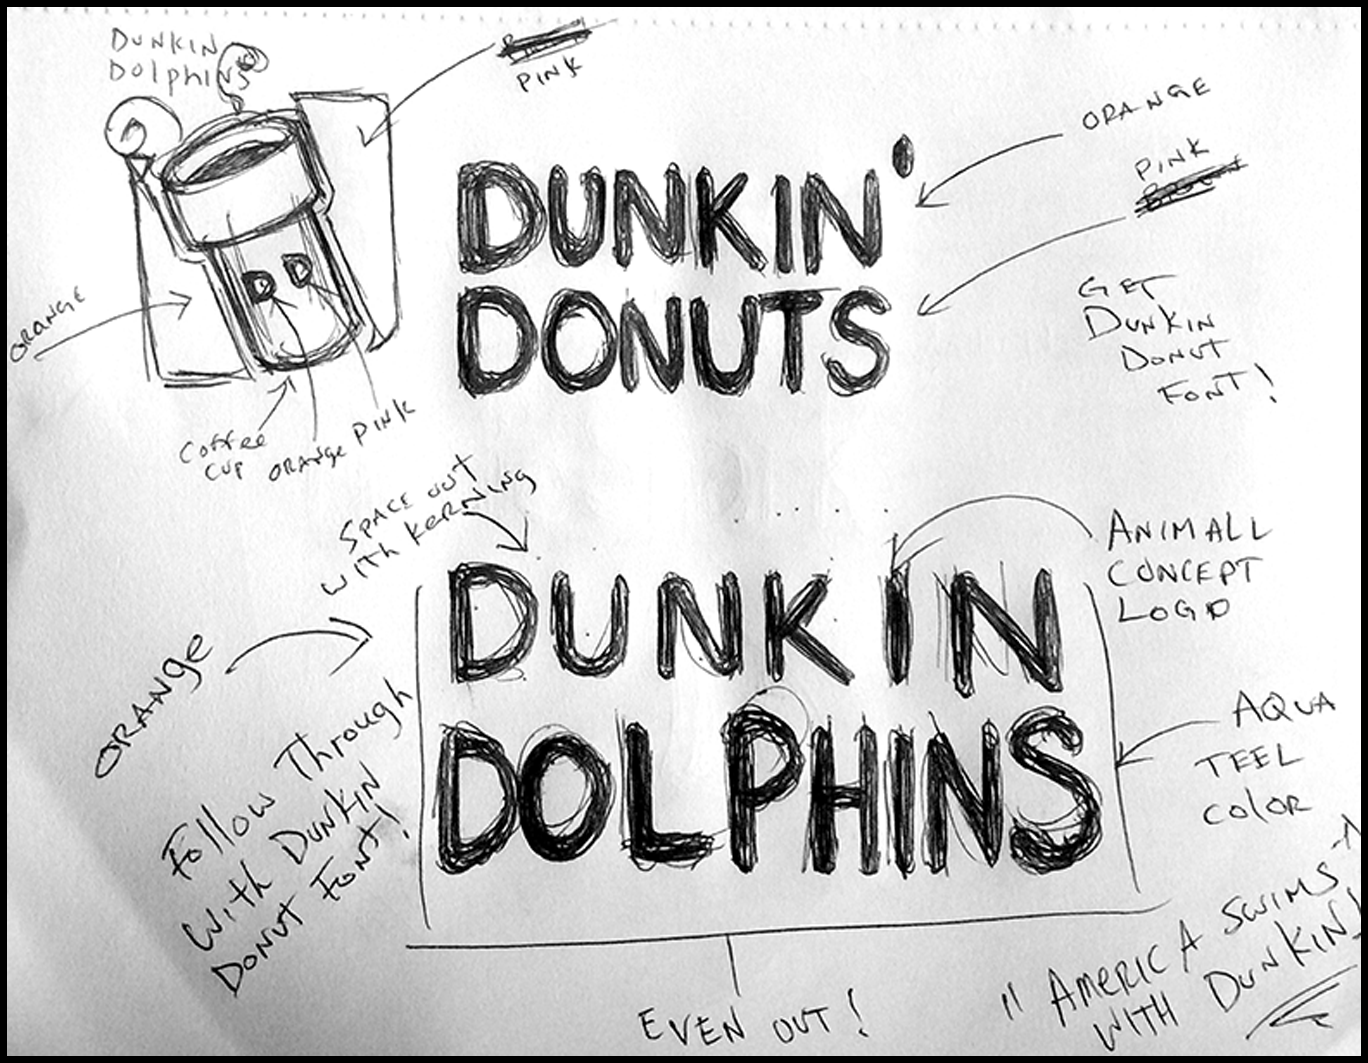 DUNKIN
DOLPHINS
PINK
ORANGE
D D
Coffee
CUP
ORANGE
PINK
DUNKIN'
DONUTS
ORANGE
PINK
GET
DUNKIN
DONUT
FONT!
SPACE OUT
WITH KERNING
ORANGE
Follow Through
With DUNKIN
DONUT FONT!
DUNKIN
DOLPHINS
ANIMALL
CONCEPT
LOGO
AQUA
TEEL
COLOR
EVEN OUT!
"AMERICA SWIMS
WITH DUNKIN!